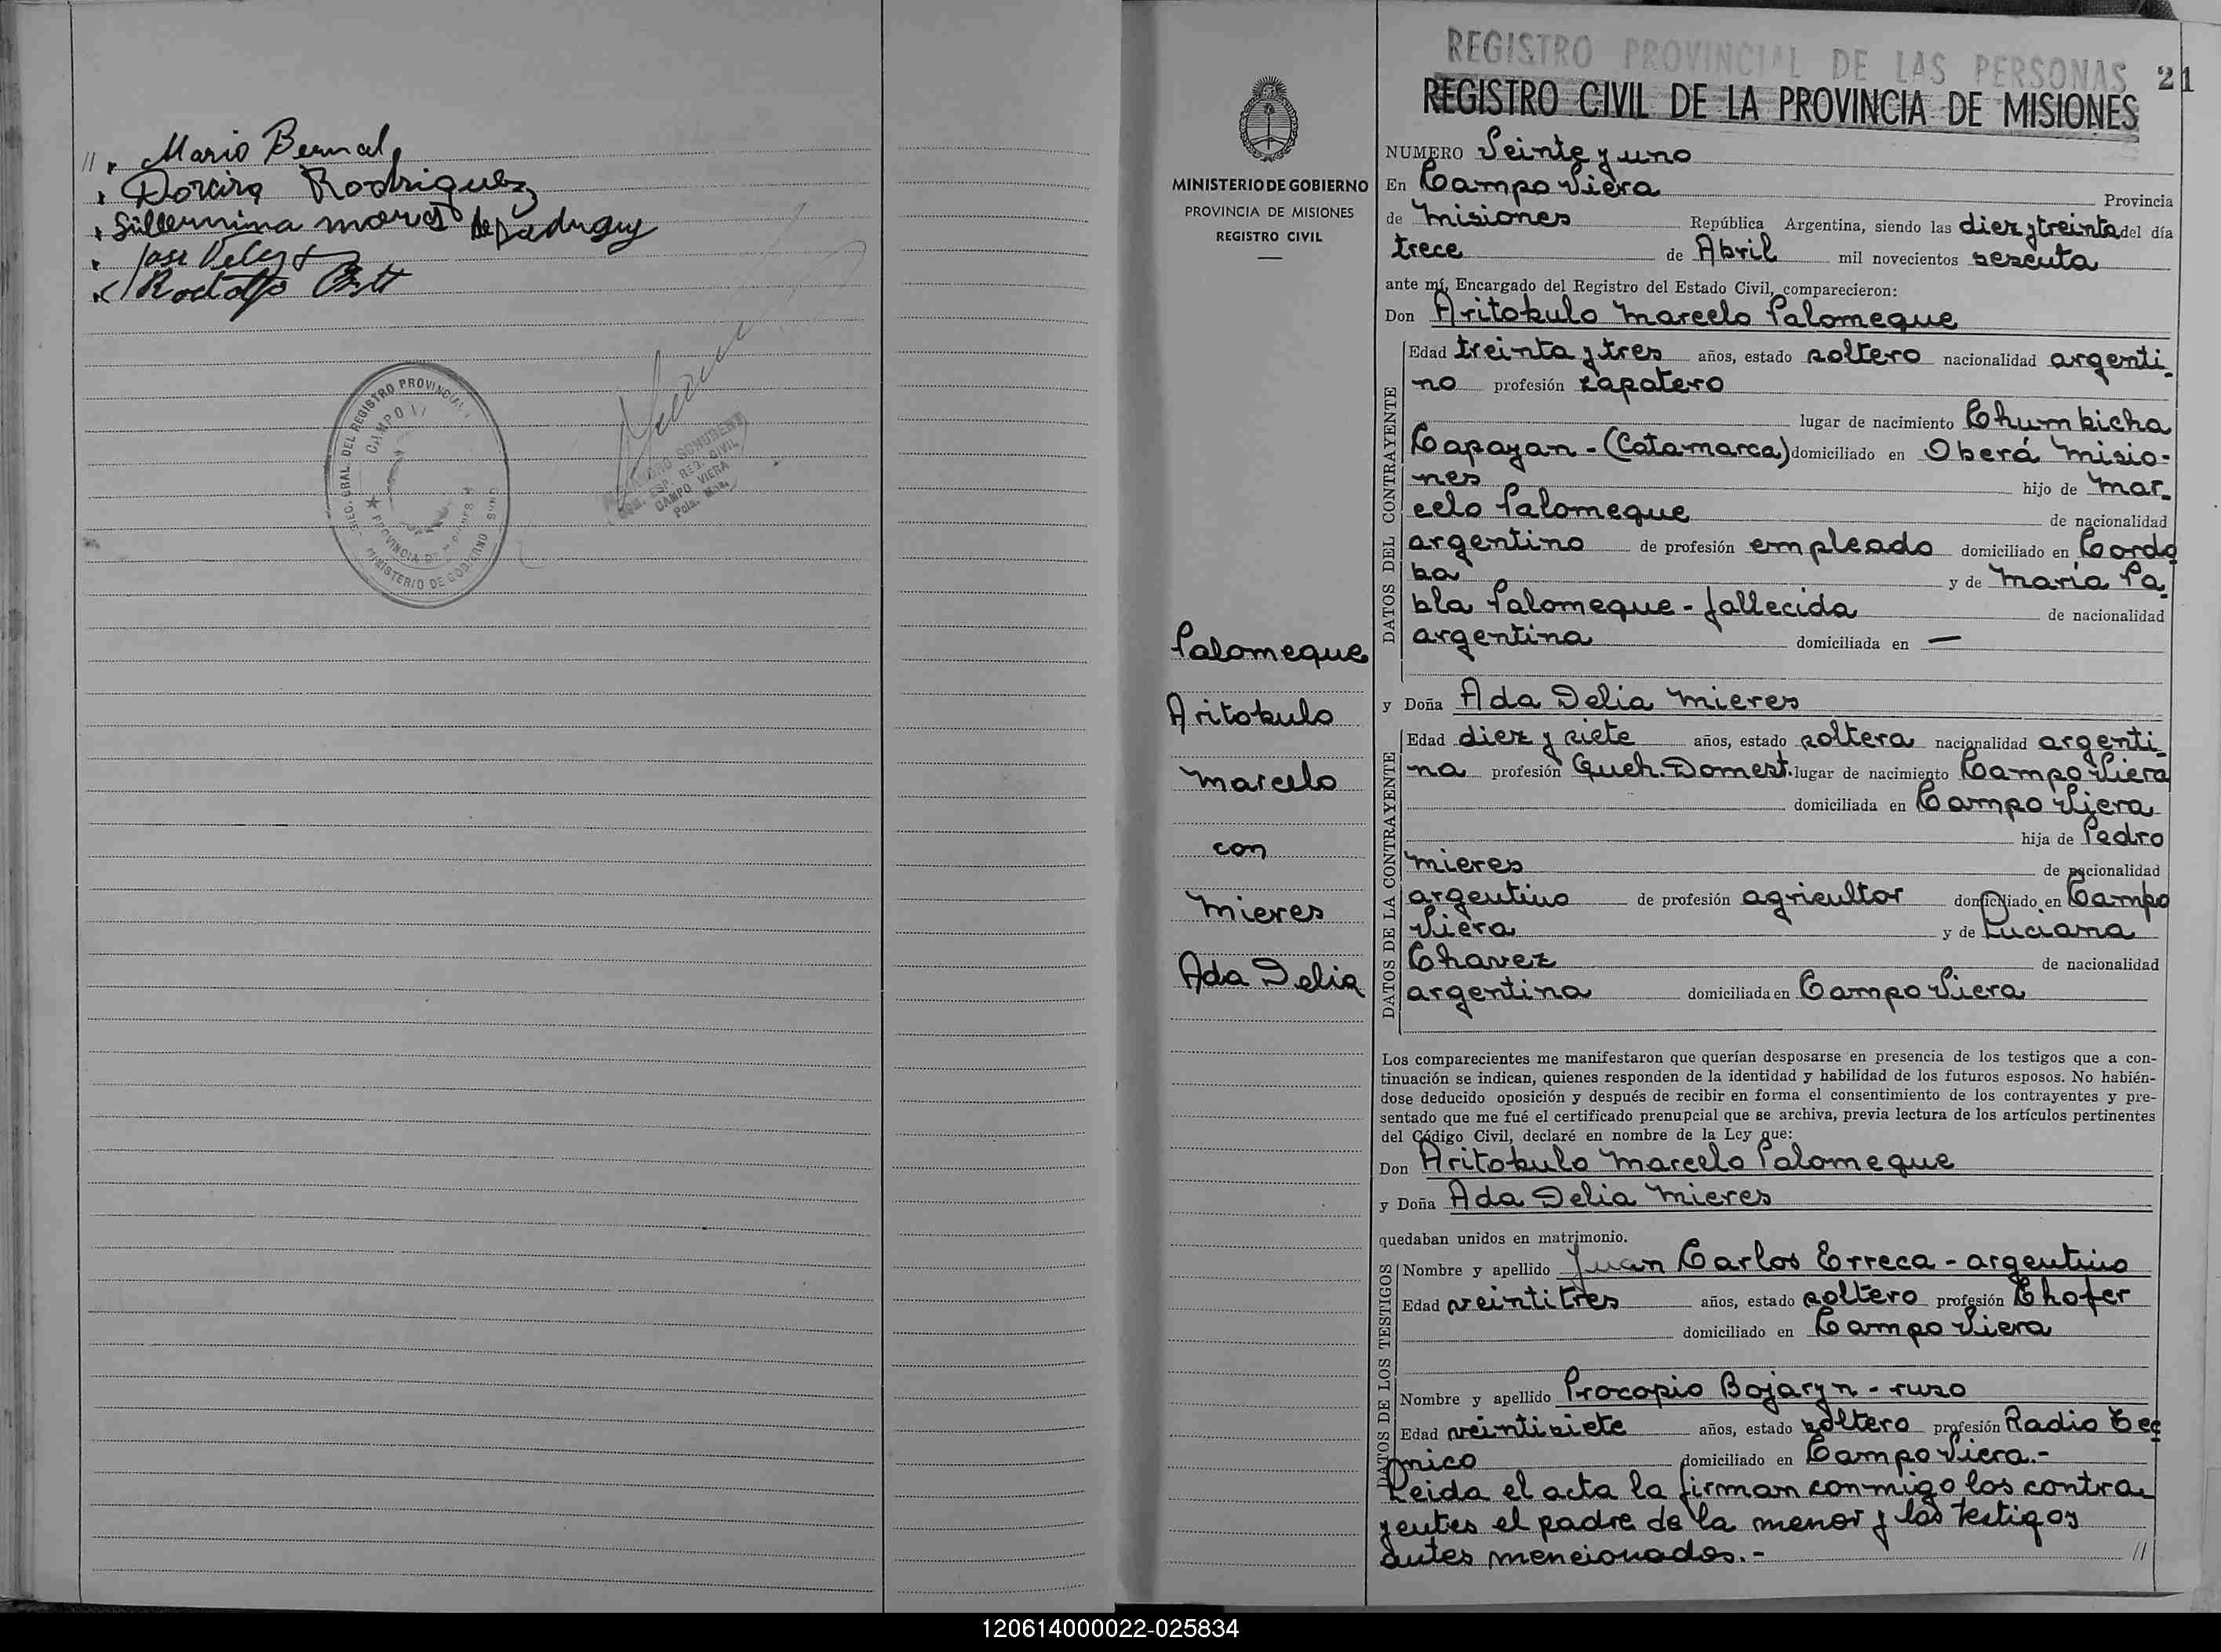 // Mario Bernal
Dorcira Rodriguez
Guillermina mores de
Jose Velez
Rodolfo
SEC. GRAL. DEL REGISTRO PROVINCIAL
CAMPO VI
PROVINCIA DE MISIONES
MINISTERIO DE GOBIERNO
SCHUBERT
ESP. REG. CIVIL
CAMPO VIERA
Pcia. Mnes.
REGISTRO PROVINCIAL DE LAS PERSONAS
21
REGISTRO CIVIL DE LA PROVINCIA DE MISIONES
MINISTERIO DE GOBIERNO
PROVINCIA DE MISIONES
REGISTRO CIVIL
Palomeque
Aritobulo
Marcelo
con
Mieres
Ada Delia
NUMERO Veinte y uno
En Campo Viera Provincia
de Misiones República Argentina, siendo las diez y treinta del día
trece de Abril mil novecientos sesenta
ante mí, Encargado del Registro del Estado Civil, comparecieron:
Don Aritobulo Marcelo Palomeque
DATOS DEL CONTRAYENTE
Edad treinta y tres años, estado soltero nacionalidad argenti-
no profesión zapatero
lugar de nacimiento Chumbicha
Capayan - (Catamarca) domiciliado en Oberá Misio-
nes hijo de Mar-
celo Palomeque de nacionalidad
argentino de profesión empleado domiciliado en Cordo
ba y de María Pa
bla Palomeque - fallecida de nacionalidad
argentina domiciliada en —
y Doña Ada Delia Mieres
DATOS DE LA CONTRAYENTE
Edad diez y siete años, estado soltera nacionalidad argenti-
na profesión Queh. Domest. lugar de nacimiento Campo Viera
domiciliada en Campo Viera
hija de Pedro
Mieres de nacionalidad
argentino de profesión agricultor domiciliado en Campo
Viera y de Luciana
Chavez de nacionalidad
argentina domiciliada en Campo Viera
Los comparecientes me manifestaron que querían desposarse en presencia de los testigos que a con-
tinuación se indican, quienes responden de la identidad y habilidad de los futuros esposos. No habién-
dose deducido oposición y después de recibir en forma el consentimiento de los contrayentes y pre-
sentado que me fué el certificado prenupcial que se archiva, previa lectura de los artículos pertinentes
del Código Civil, declaré en nombre de la Ley que:
Don Aritobulo Marcelo Palomeque
y Doña Ada Delia Mieres
quedaban unidos en matrimonio.
DATOS DE LOS TESTIGOS
Nombre y apellido Juan Carlos Erreca - argentino
Edad veintitres años, estado soltero profesión Chofer
domiciliado en Campo Viera
Nombre y apellido Procopio Bojaryn - ruso
Edad veintisiete años, estado soltero profesión Radio Tec
nico domiciliado en Campo Viera.-
Leida el acta la firman conmigo los contra
yentes el padre de la menor y los testigos
antes mencionados.- //
120614000022-025834